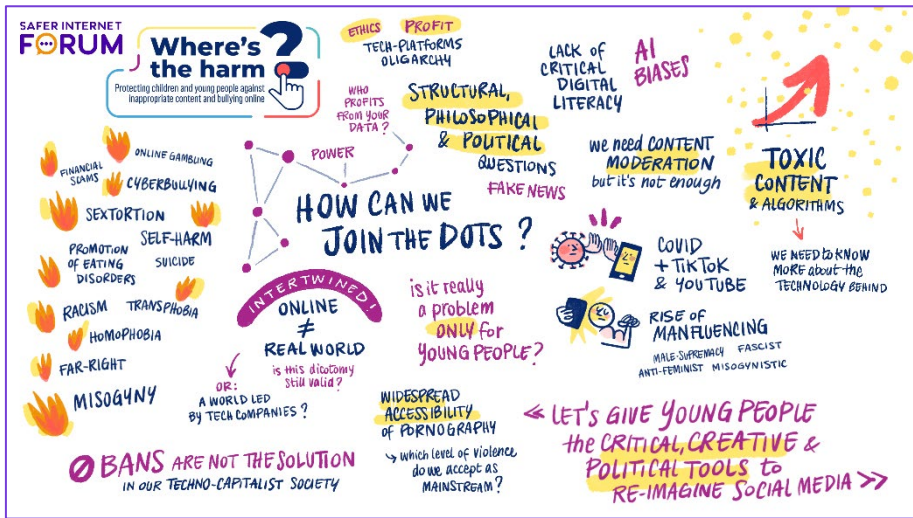 SAFER INTERNET
FORUM
Where's
the harm
?
Protecting children and young people against
inappropriate content and bullying online
ETHICS PROFIT
TECH-PLATFORMS
OLIGARCHY
LACK OF
CRITICAL
DIGITAL
LITERACY
AI
BIASES
WHO
PROFITS
FROM YOUR
DATA?
POWER
STRUCTURAL,
PHILOSOPHICAL
& POLITICAL
QUESTIONS
FAKE NEWS
we NEED CONTENT
MODERATION
but it's not enough
TOXIC
CONTENT
& ALGORITHMS
WE NEED to KNOW
MORE about the
TECHNOLOGY BEHIND
FINANCIAL
SCAMS
ONLINE GAMBLING
CYBERBULLYING
SEXTORTION
SELF-HARM
PROMOTION
OF EATING
DISORDERS
SUICIDE
RACISM
TRANSPHOBIA
HOMOPHOBIA
FAR-RIGHT
MISOGYNY
HOW CAN WE
JOIN THE DOTS?
INTERTWINED!
ONLINE
≠
REAL WORLD
is this dicotomy
still valid?
OR:
A WORLD LED
BY TECH COMPANIES?
is it really
a problem
ONLY for
YOUNG PEOPLE?
COVID
+ TIKTOK
& YOUTUBE
RISE OF
MANFLUENCING
MALE-SUPREMACY FASCIST
ANTI-FEMINIST MISOGYNISTIC
WIDESPREAD
ACCESSIBILITY
of PORNOGRAPHY
which level of violence
do we accept as
MAINSTREAM?
BANS ARE NOT THE SOLUTION
IN OUR TECHNO-CAPITALIST SOCIETY
<< LET'S GIVE YOUNG PEOPLE
the CRITICAL, CREATIVE &
POLITICAL TOOLS to
RE-IMAGINE SOCIAL MEDIA >>